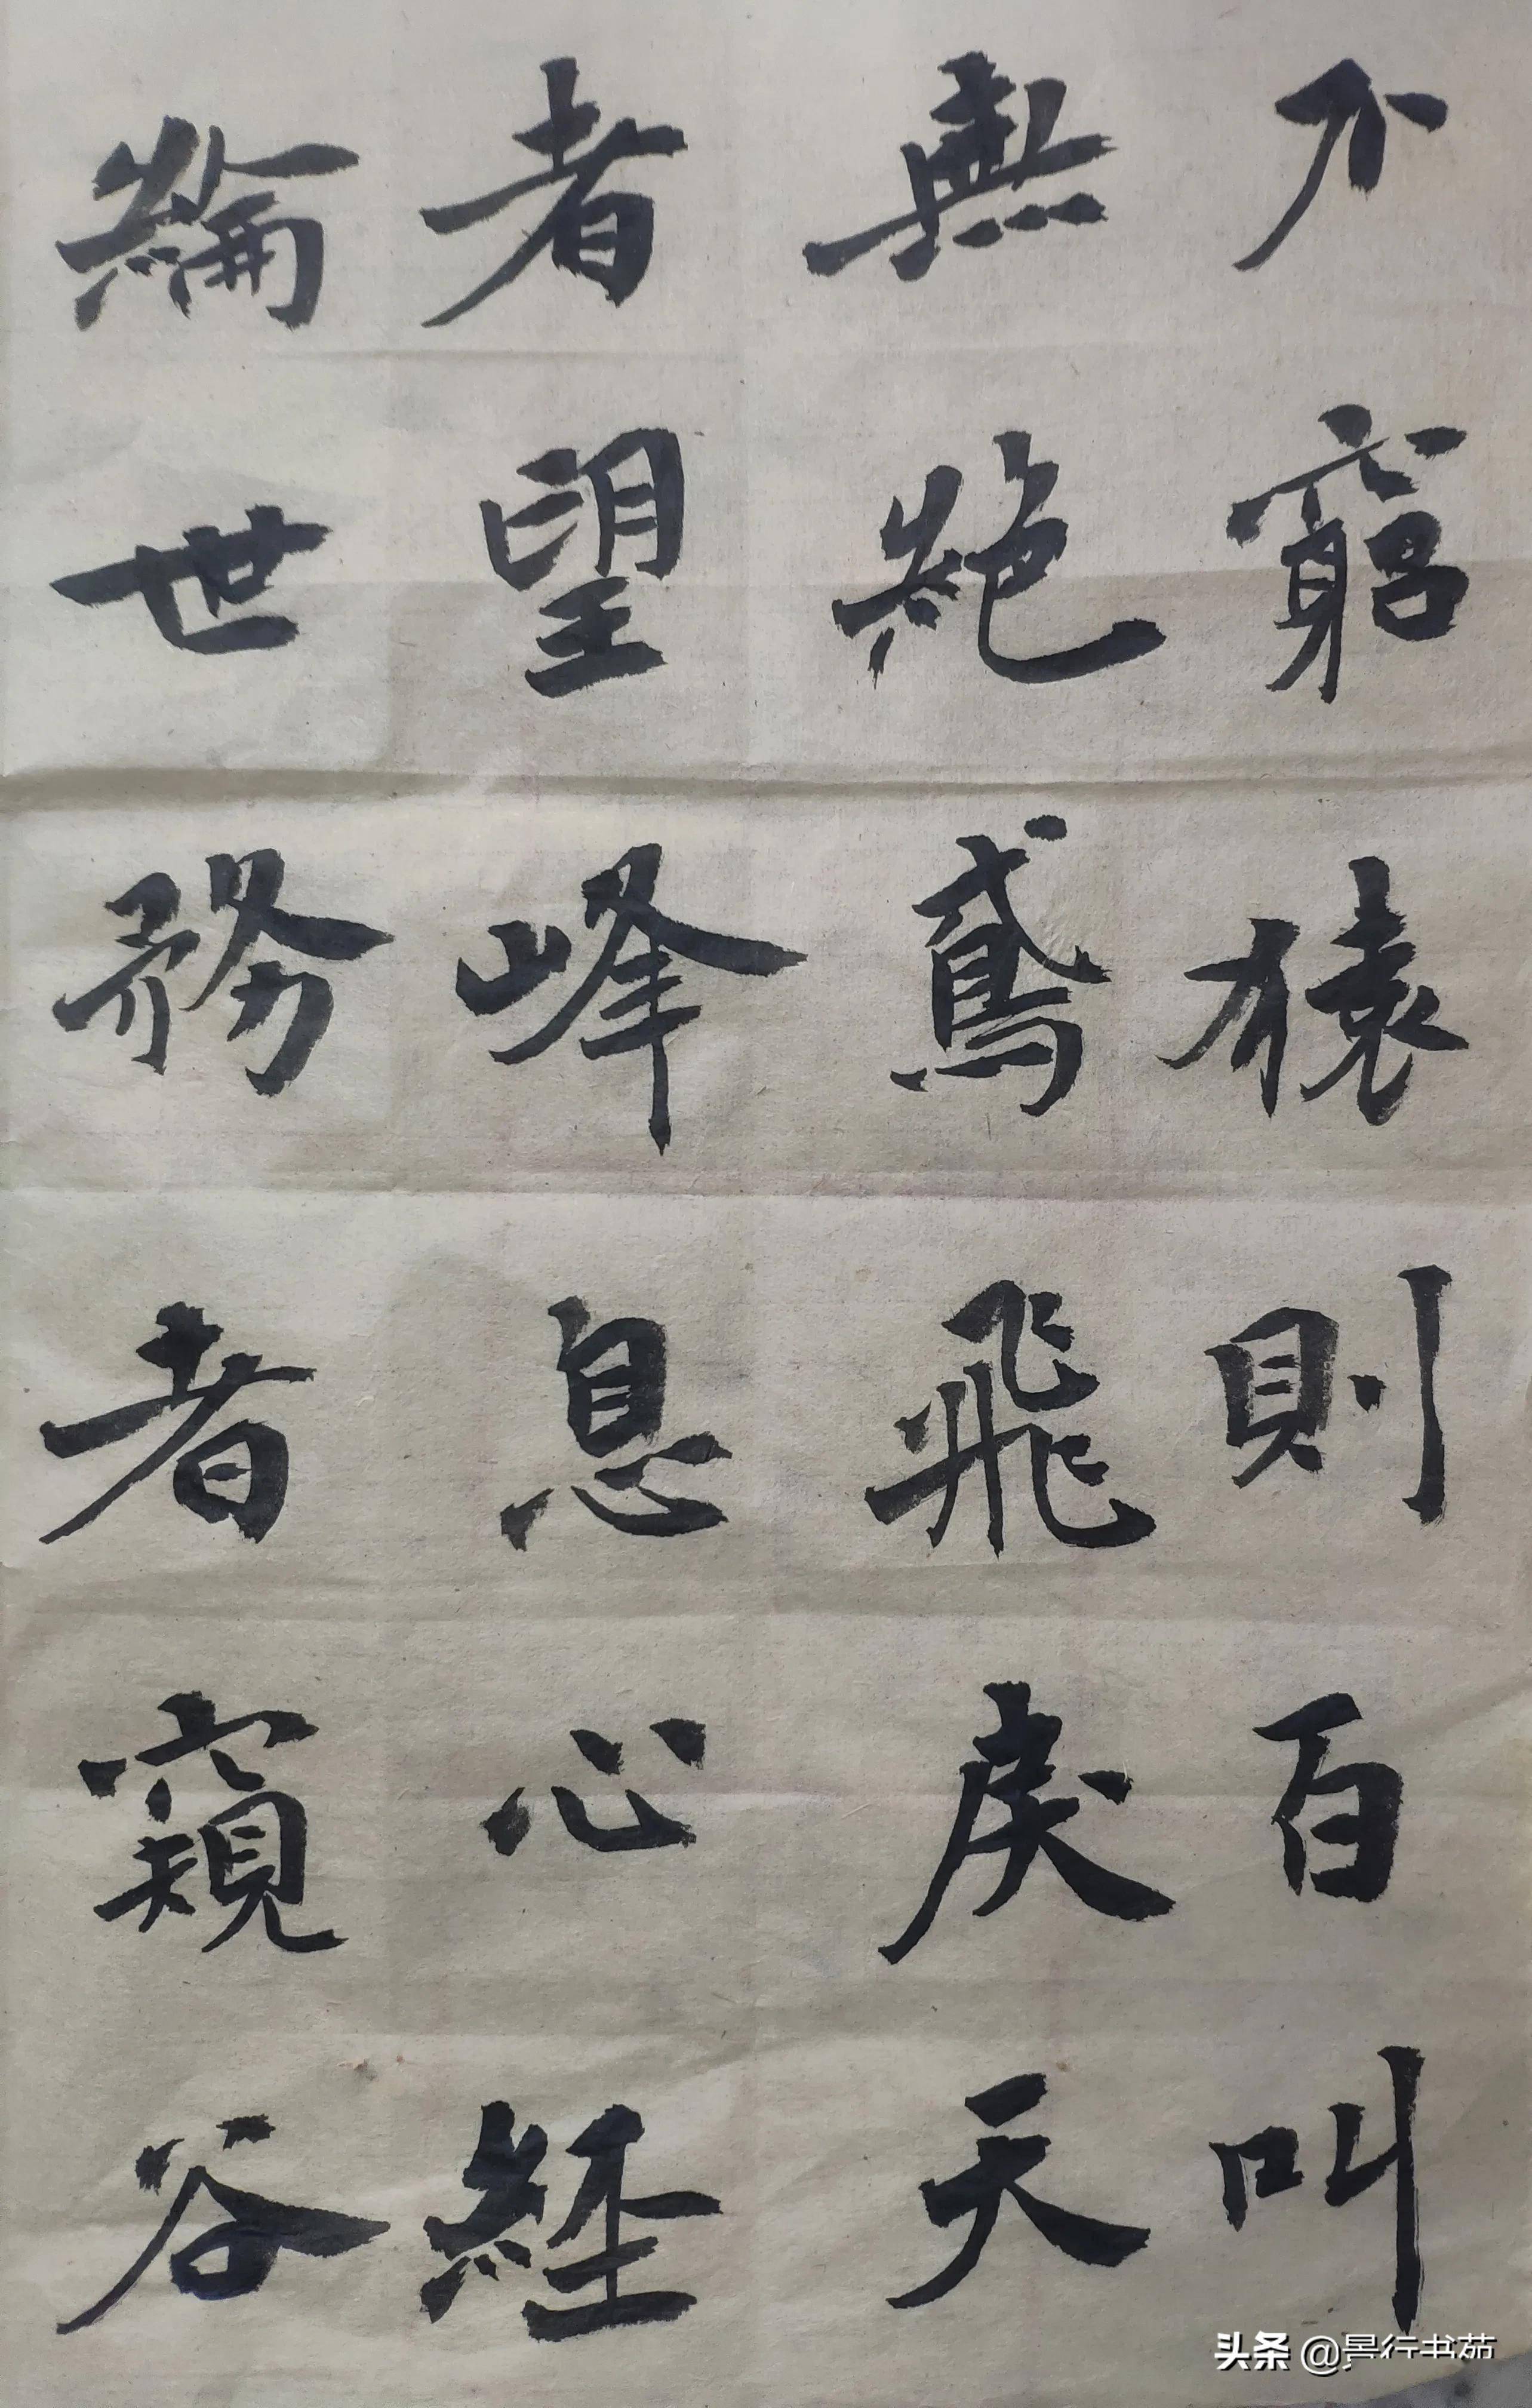 不窮猿則百叫
無絶鳶飛戾天
者望峰息心経
綸世務者窺谷
头条 @景行书苑